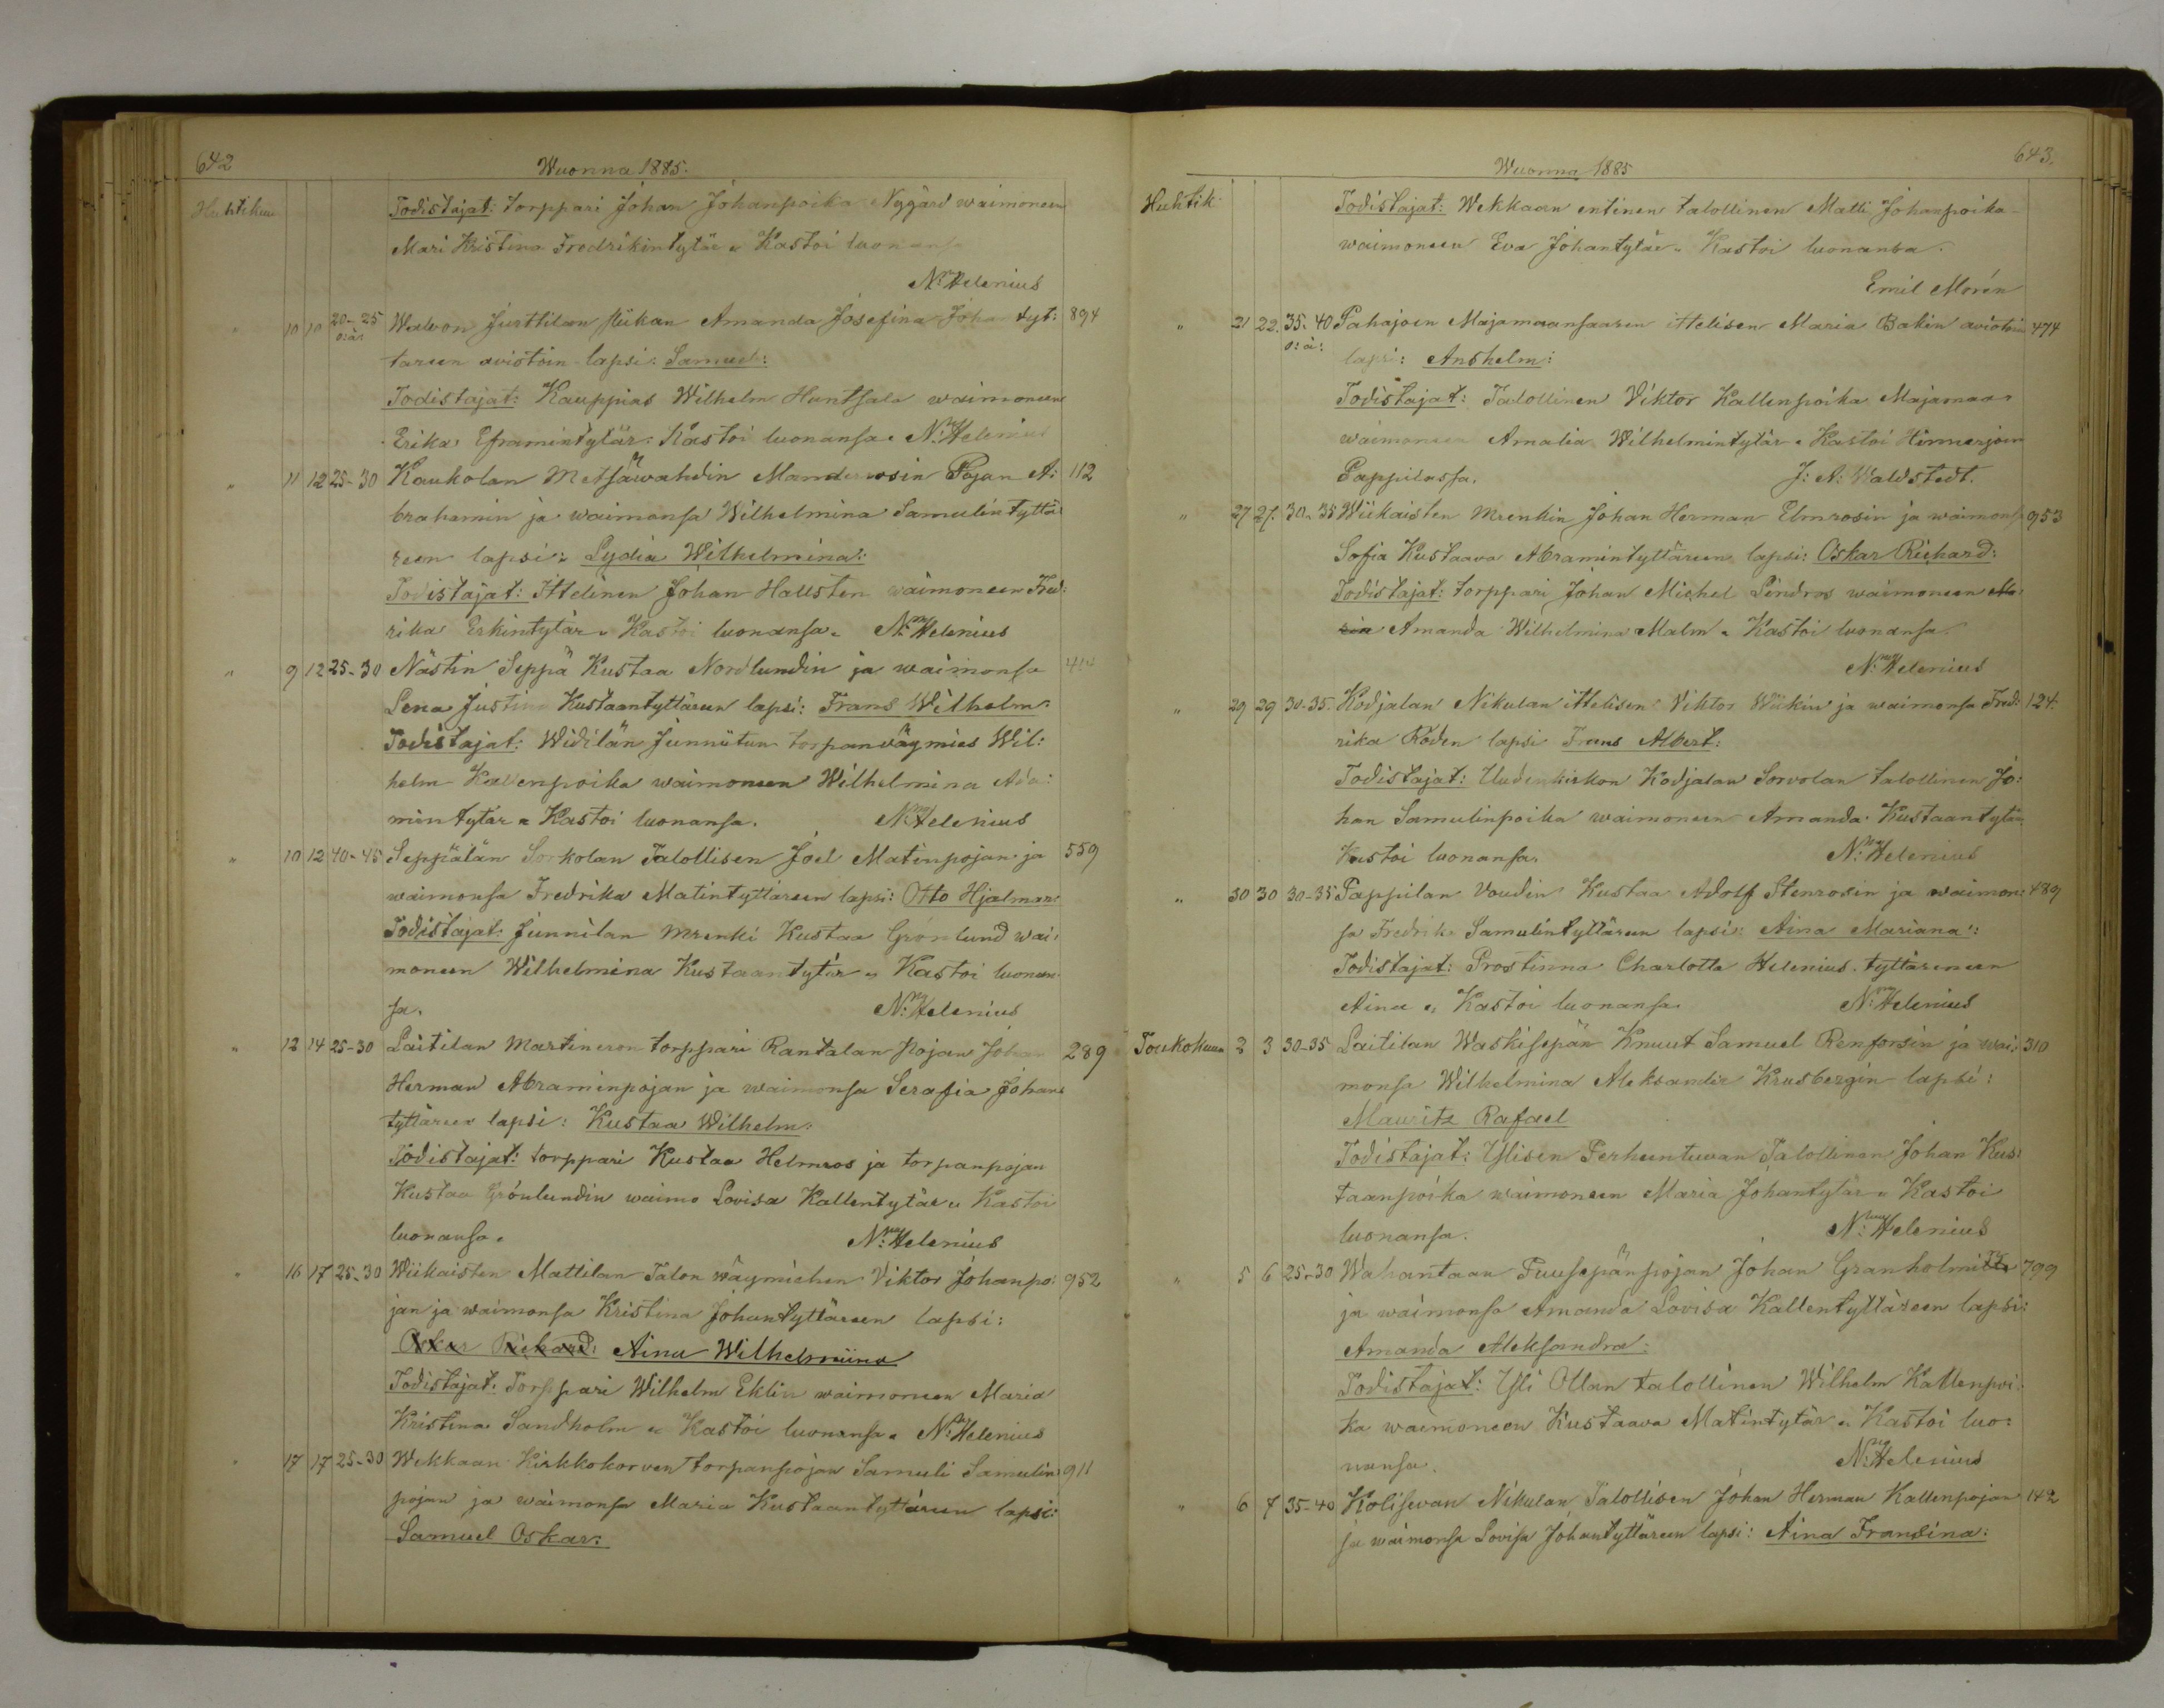 642
Wuonna 1885.
Huhtikuu
Todistajat: torppari Johan Johanpoika Nygård waimoneen
Mari Kristina Fredrikintytär „ Kastoi luonansa
N: Helenius
" 10 10 20-25 Walvon Junttilan piikan Amanda Josefina Johantyt: 894
o: ä:
täreen aviotoin lapsi: Samuel:
Todistajat: Kauppias Wilhelm Huntsala waimoneen
Erika Eframintytär. Kastoi luonansa „ N: Helenius
" 11 12 25-30 Kaukolan Metsäwahdin Manderosin Pojan A: 112
brahamin ja waimonsa Wilhelmina Samulintyttä:
reen lapsi: Lydia Wilhelmina:
Todistajat: Ittelinen Johan Hallsten waimoneen Fred:
rika Erkintytär „ Kastoi luonansa „ N: Helenius
" 9 12 25-30 Nästin Seppä Kustaa Nordlundin ja waimonsa 414
Lena Justina Kustaantyttäreen lapsi: Frans Wilhelm:
Todistajat: Widilän Junnitun torpanvägmies Wil:
helm Kallenpoika waimoneen Wilhelmina Ada:
mintytär „ Kastoi luonansa. N: Helenius
" 10 12 40-45 Seppälän Sorkolan Talollisen Joel Matinpojan ja 559
waimonsa Fredrika Matintyttäreen lapsi: Otto Hjalmar:
Todistajat: Junnilan Mrenki Kustaa Grönlund wai:
moneen Wilhelmina Kustaantytär „ Kastoi luonan
sa. N: Helenius
" 12 14 25-30 Laitilan Martineron torppari Rantalan Pojan Johan 289
Herman Abraminpojan ja waimonsa Serafia Johan:
tyttäreen lapsi: Kustaa Wilhelm:
Todistajat: torppari Kustaa Helmros ja torpanpojan
Kustaa Grönlundin waimo Lovisa Kallentytär „ Kastoi
luonansa. N: Helenius
" 16 17 25-30 Wiikaisten Mattilan Talon wäymiehen Viktor Johanpo: 952
jan ja waimonsa Kristina Johantyttäreen lapsi:
Oskar Richard: Aina Wilhelmiina
Todistajat: Torppari Wilhelm Eklin waimoneen Maria
Kristina Sandholm „ Kastoi luonansa „ N: Helenius
" 17 17 25-30 Wekkaan Kirkkokorven torpanpojan Samuli Samulin: 911
pojan ja waimonsa Maria Kustaantyttäreen lapsi:
Samuel Oskar:
643.
Wuonna 1885
Huhtik:
Todistajat: Wekkaan entinen talollinen Matti Johanpoika
waimoneen Eva Johantytär „ Kastoi luonansa.
Emil Morén
" 21 22. 35-40 Pahajoen Majamaansaaren ittelisen Maria Bakin aviotoin 474
o: ä:
lapsi: Anshelm:
Todistajat: Talollinen Viktor Kallenpoika Majamaa
waimoneen Amalia Wilhelmintytär „ Kastoi Hinnerjoen
Pappilassa. J: A: Waldstedt.
" 27 27. 30-35 Wiikaisten Mrenkin Johan Herman Elmrosin ja waimonsa 953
Sofia Kustaava Abramintyttäreen lapsi: Oskar Richard:
Todistajat: torppari Johan Michel Lindros waimoneen Ma:
ria Amanda Wilhelmina Malm „ Kastoi luonansa.
N: Helenius
" 29 29 30-35. Kodjalan Nikulan ittelisen Viktor Wiikin ja waimonsa Fred: 124.
rika Roden lapsi Frans Albert:
Todistajat: Uudenkirkon Kodjalan Sorvolan talollinen Jo:
han Samulinpoika waimoneen Amanda Kustaantytär.
Kastoi luonansa. N: Helenius
" 30 30 30-35 Pappilan Voudin Kustaa Adolf Stenrosin ja waimon: 489
sa Fredrika Samulintyttäreen lapsi: Aina Mariana:
Todistajat: Prostinna Charlotta Helenius tyttäreneen
Aina „ Kastoi luonansa. N: Helenius
Toukokuu 2 3 30-35 Laitilan Waskisepän Knuut Samuel Renforsin ja wai: 310
monsa Wilhelmina Aleksander Krusbergin lapsi:
Mauritz Rafael
Todistajat: Ylisen Perhuntuvan Talollinen Johan Kus:
taanpoika waimoneen Maria Johantytär „ Kastoi
luonansa. N: Helenius
" 5 6 25-30 Wahantaan Puusepänpojan Johan Granholmin 799
ja waimonsa Amanda Lovisa Kallentyttäreen lapsi:
Amanda Aleksandra:
Todistajat: Yli Ollan talollinen Wilhelm Kallenpoi:
ka waimoneen Kustaava Matintytär „ Kastoi luo:
nansa. N: Helenius
" 6 7 35-40 Kolisevan Nikulan Talollisen Johan Herman Kallenpojan 142
ja waimonsa Lovisa Johantyttäreen lapsi: Aina Fransina: